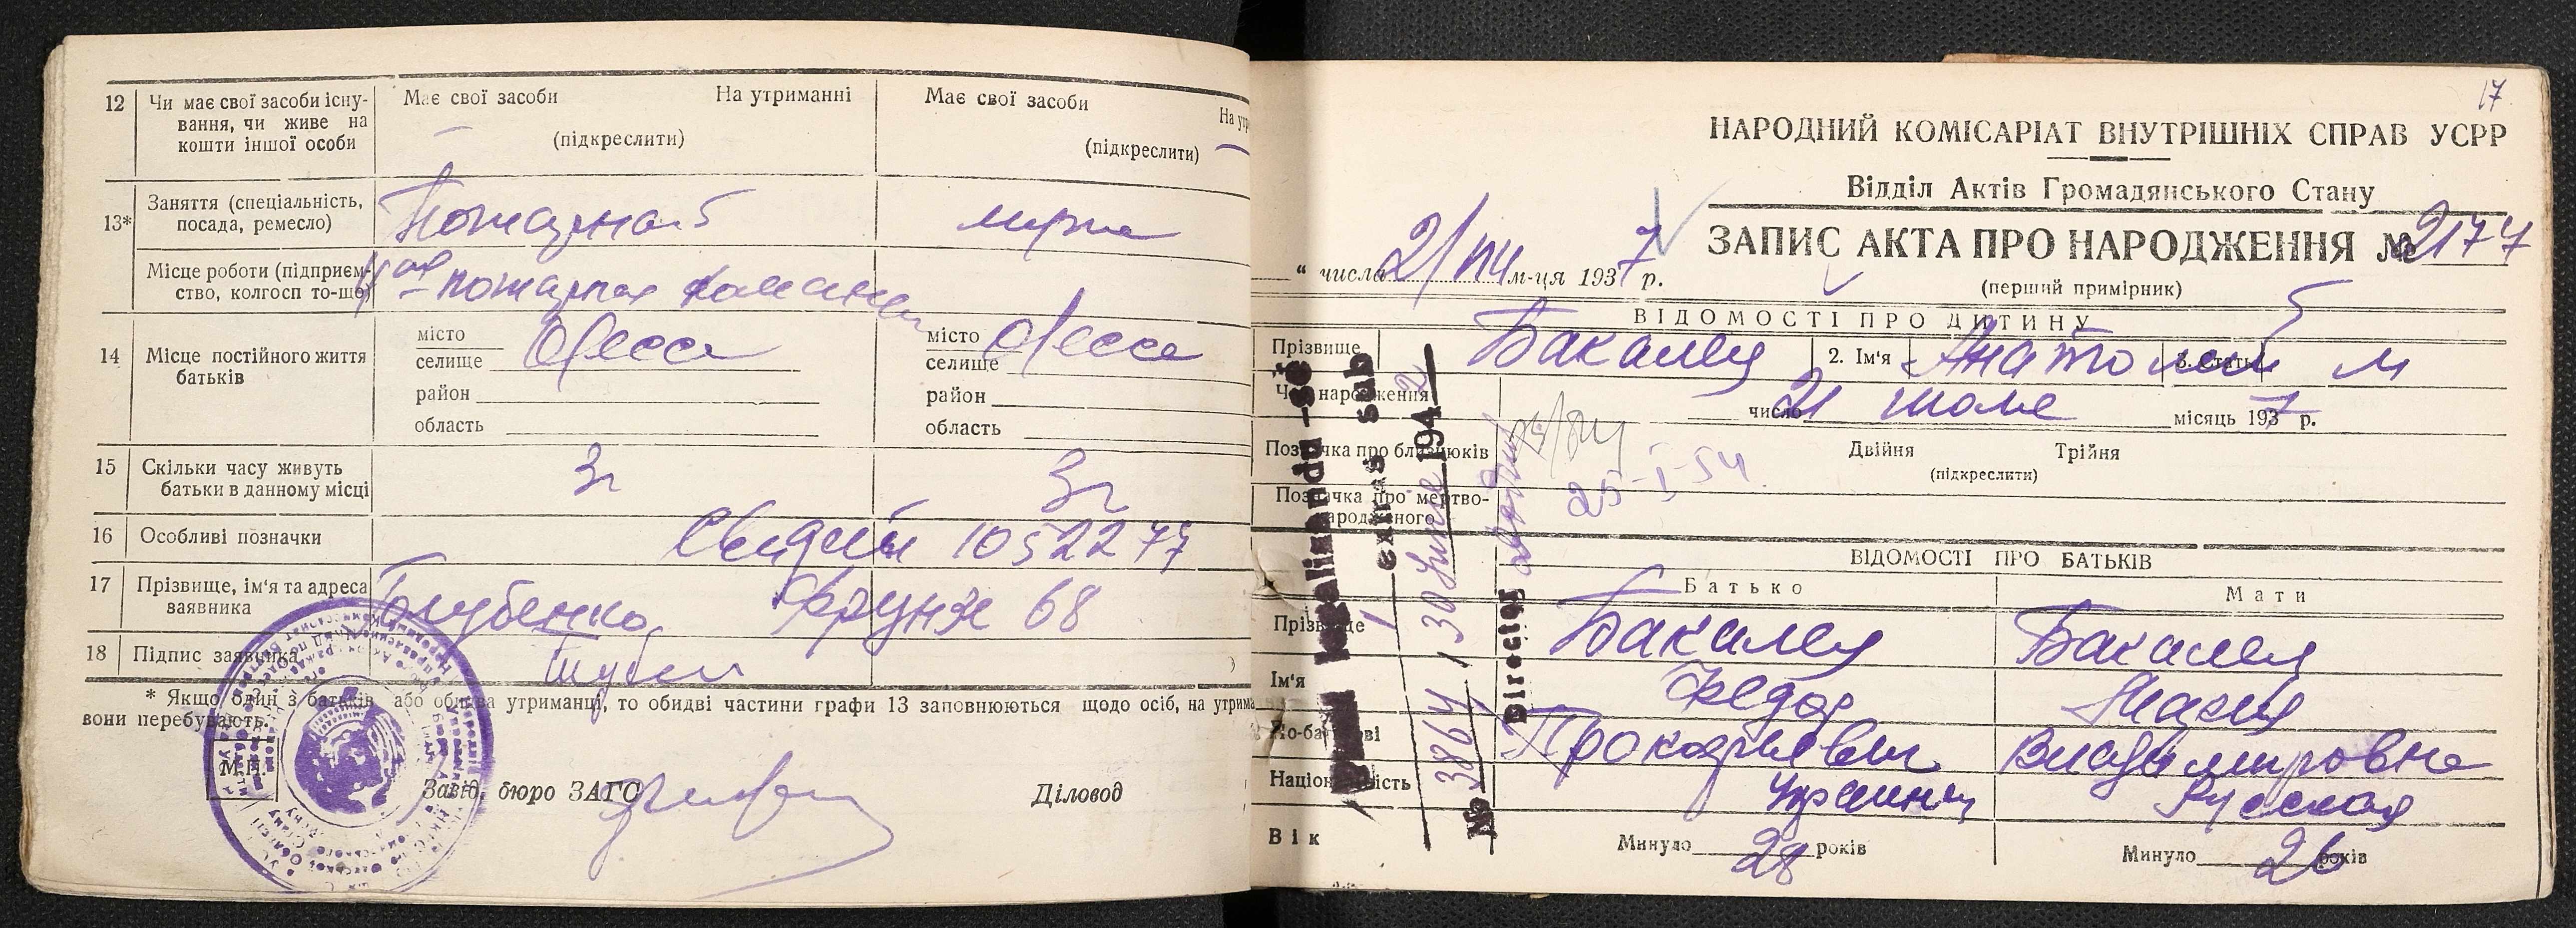 12 Чи має свої засоби існу-
вання, чи живе на
кошти іншої особи
Має свої засоби На утриманні
(підкреслити)
Має свої засоби
(підкреслити)
13* Заняття (спеціальність,
посада, ремесло)
Місце роботи (підприєм-
ство, колгосп то-що)
пожарная
14 Місце постійного життя
батьків
місто Одесса
селище
район
область
місто Одесса
селище
район
область
15 Скільки часу живуть
батьки в данному місці
3г 3г
16 Особливі позначки
1052277
17 Прізвище, ім'я та адреса
заявника
Голубенко Фрунзе 68
18 Підпис заявника
* Якщо один з батьків або обидва утриманці, то обидві частини графи 13 заповнюються щодо осіб, на утрима
вони перебувають.
М.П.
Завід. бюро ЗАГС Діловод
17
НАРОДНИЙ КОМІСАРІАТ ВНУТРІШНІХ СПРАВ УСРР
Відділ Актів Громадянського Стану
ЗАПИС АКТА ПРО НАРОДЖЕННЯ № 2177
(перший примірник)
" числа 21/VII м-ця 1937 р.
ВІДОМОСТІ ПРО ДИТИНУ
Прізвище Бакалец 2. Ім'я Анатолий 3. Стать м
Час народження
число 21 июля місяць 1937 р.
Позначка про близнюків
Двійня Трійня
(підкреслити)
25-I-54
Позначка про мертво-
народженого
ВІДОМОСТІ ПРО БАТЬКІВ
Батько Мати
Прізвище Бакалец Бакалец
Ім'я Федор
По-батькові Прокофьевич Владимировна
Національність Украинец Русская
Вік Минуло 28 років Минуло 26 років
legalizandu-se
1 extras sub
No 3864, 30 Iunie 1942
Director